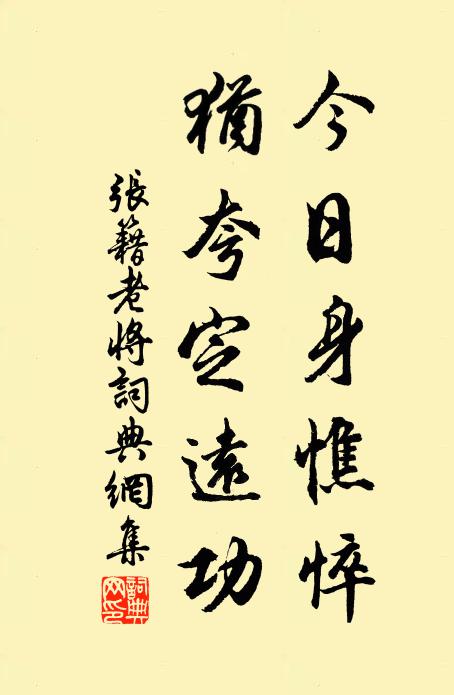 今日身憔悴
猶夸定遠功
張籍老將詞典網集
詞典網印